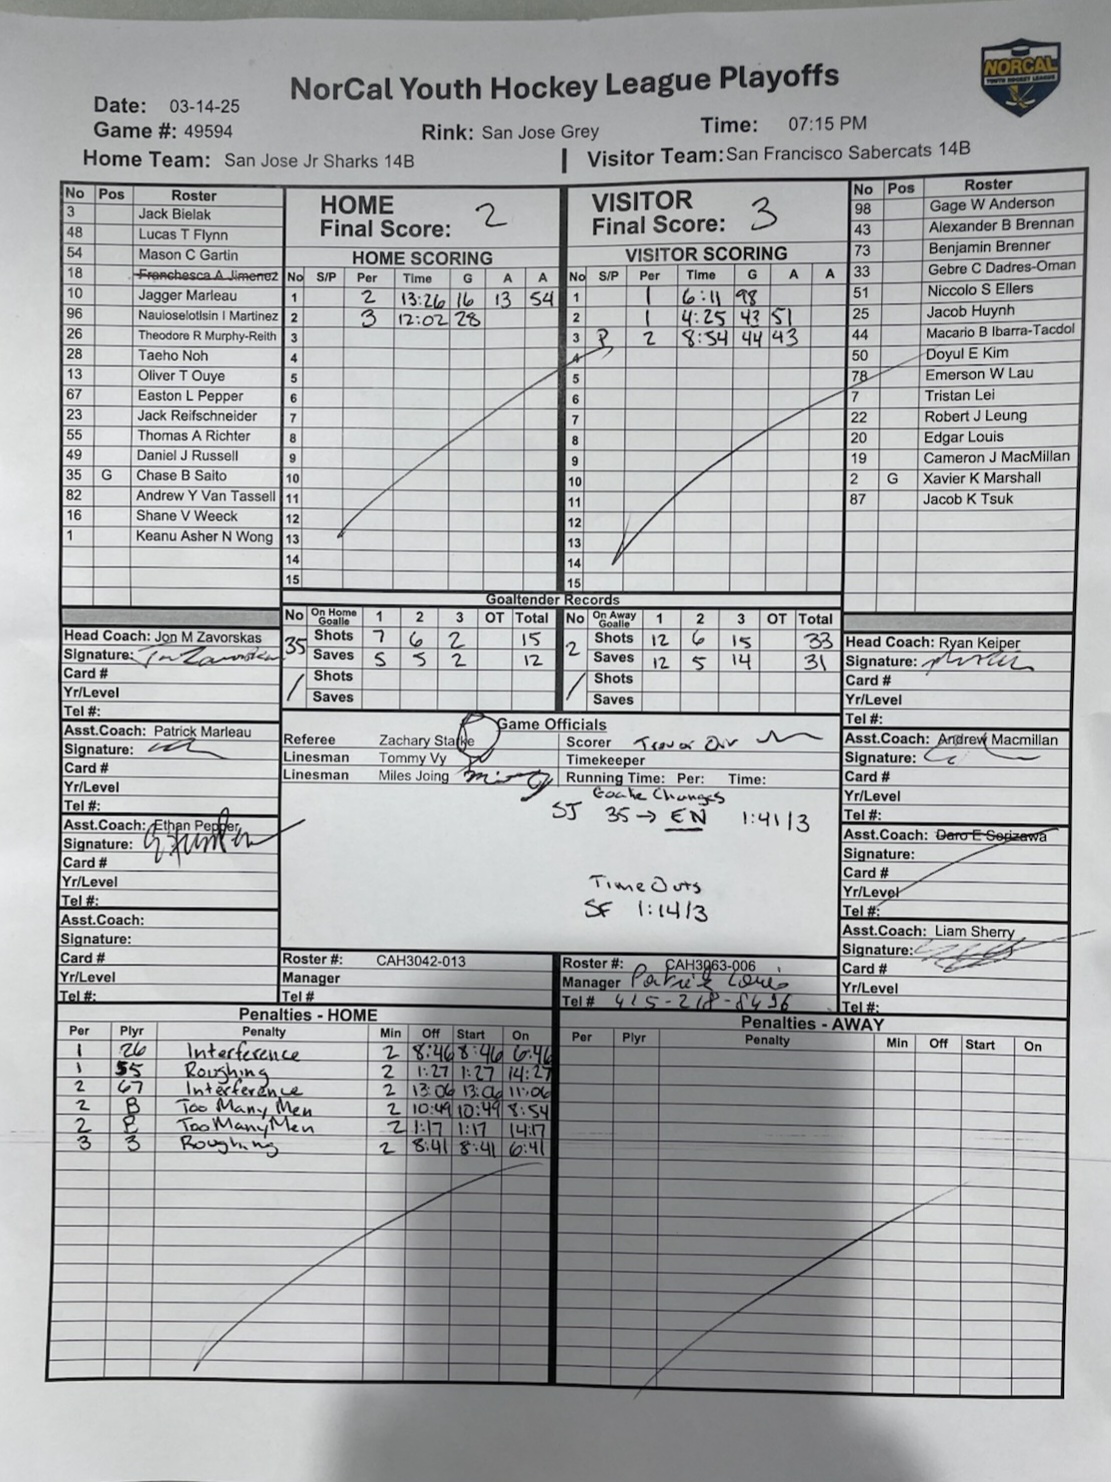 NorCal Youth Hockey League Playoffs
NORCAL
YOUTH HOCKEY LEAGUE
Date: 03-14-25
Game #: 49594
Rink: San Jose Grey
Time: 07:15 PM
Home Team: San Jose Jr Sharks 14B
Visitor Team: San Francisco Sabercats 14B
No Pos Roster
3 Jack Bielak
48 Lucas T Flynn
54 Mason C Gartin
18 Franchesca A Jimenez
10 Jagger Marleau
96 Nauioselotlsin I Martinez
26 Theodore R Murphy-Reith
28 Taeho Noh
13 Oliver T Ouye
67 Easton L Pepper
23 Jack Reifschneider
55 Thomas A Richter
49 Daniel J Russell
35 G Chase B Saito
82 Andrew Y Van Tassell
16 Shane V Weeck
1 Keanu Asher N Wong
HOME
Final Score: 2
HOME SCORING
No S/P Per Time G A A
1 2 13:26 16 13 54
2 3 12:02 28
3
4
5
6
7
8
9
10
11
12
13
14
15
VISITOR
Final Score: 3
VISITOR SCORING
No S/P Per Time G A A
1 1 6:11 98
2 1 4:25 43 51
3 P 2 8:54 44 43
4
5
6
7
8
9
10
11
12
13
14
15
No Pos Roster
98 Gage W Anderson
43 Alexander B Brennan
73 Benjamin Brenner
33 Gebre C Dadres-Oman
51 Niccolo S Ellers
25 Jacob Huynh
44 Macario B Ibarra-Tacdol
50 Doyul E Kim
78 Emerson W Lau
7 Tristan Lei
22 Robert J Leung
20 Edgar Louis
19 Cameron J MacMillan
2 G Xavier K Marshall
87 Jacob K Tsuk
Goaltender Records
No On Home Goalie 1 2 3 OT Total
35 Shots 7 6 2 15
Saves 5 5 2 12
Shots
Saves
No On Away Goalie 1 2 3 OT Total
2 Shots 12 6 15 33
Saves 12 5 14 31
Shots
Saves
Head Coach: Jon M Zavorskas
Signature:
Card #
Yr/Level
Tel #:
Asst.Coach: Patrick Marleau
Signature:
Card #
Yr/Level
Tel #:
Asst.Coach: Ethan Pepper
Signature:
Card #
Yr/Level
Tel #:
Asst.Coach:
Signature:
Card #
Yr/Level
Tel #:
Game Officials
Referee Zachary Starke
Linesman Tommy Vy
Linesman Miles Joing
Scorer Trevor
Timekeeper
Running Time: Per: Time:
Goalie Changes
SJ 35 → EN 1:41/3
Time Outs
SF 1:14/3
Roster #: CAH3042-013
Manager
Tel #
Roster #: CAH3063-006
Manager Patrick Louis
Tel # 415-218-8496
Head Coach: Ryan Keiper
Signature:
Card #
Yr/Level
Tel #:
Asst.Coach: Andrew Macmillan
Signature:
Card #
Yr/Level
Tel #:
Asst.Coach: Daro E Serizawa
Signature:
Card #
Yr/Level
Tel #:
Asst.Coach: Liam Sherry
Signature:
Card #
Yr/Level
Tel #:
Penalties - HOME
Per Plyr Penalty Min Off Start On
1 26 Interference 2 8:46 8:46 6:46
1 55 Roughing 2 1:27 1:27 14:27
2 67 Interference 2 13:06 13:06 11:06
2 B Too Many Men 2 10:49 10:49 8:54
2 B Too Many Men 2 1:17 1:17 14:17
3 3 Roughing 2 8:41 8:41 6:41
Penalties - AWAY
Per Plyr Penalty Min Off Start On